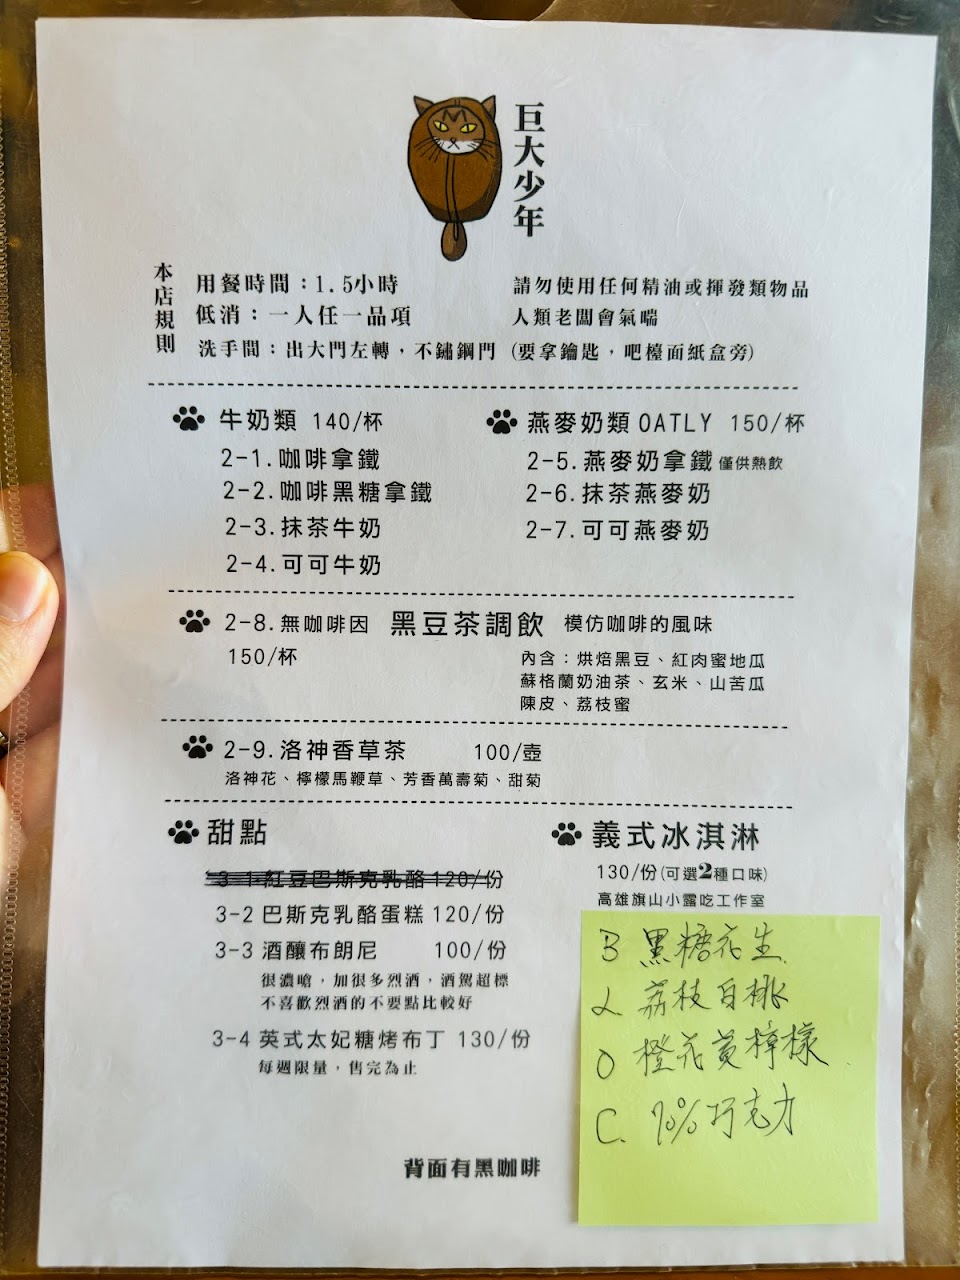 巨大少年
本店規則
用餐時間：1.5小時
低消：一人任一品項
請勿使用任何精油或揮發類物品
人類老闆會氣喘
洗手間：出大門左轉，不鏽鋼門（要拿鑰匙，吧檯面紙盒旁）
牛奶類 140/杯
2-1.咖啡拿鐵
2-2.咖啡黑糖拿鐵
2-3.抹茶牛奶
2-4.可可牛奶
燕麥奶類OATLY 150/杯
2-5.燕麥奶拿鐵 僅供熱飲
2-6.抹茶燕麥奶
2-7.可可燕麥奶
2-8.無咖啡因 黑豆茶調飲 模仿咖啡的風味
150/杯
內含：烘焙黑豆、紅肉蜜地瓜
蘇格蘭奶油茶、玄米、山苦瓜
陳皮、荔枝蜜
2-9.洛神香草茶 100/壺
洛神花、檸檬馬鞭草、芳香萬壽菊、甜菊
甜點
3-1 紅豆巴斯克乳酪 120/份
3-2 巴斯克乳酪蛋糕 120/份
3-3 酒釀布朗尼 100/份
很濃嗆，加很多烈酒，酒駕超標
不喜歡烈酒的不要點比較好
3-4 英式太妃糖烤布丁 130/份
每週限量，售完為止
義式冰淇淋
130/份(可選2種口味)
高雄旗山小露吃工作室
B 黑糖花生
L 荔枝白桃
O 橙花黃檸檬
C. 70%巧克力
背面有黑咖啡